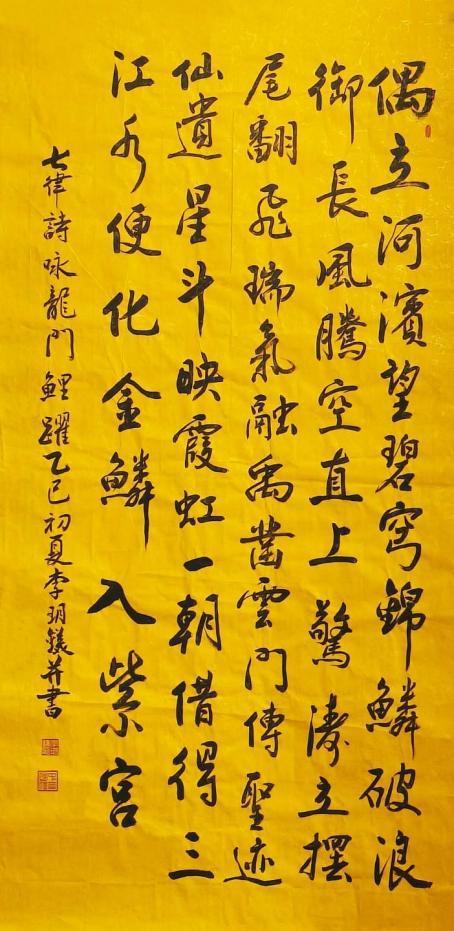 偶立河濱望碧穹錦鱗破浪
御長風騰空直上驚濤立擺
尾翻飛瑞氣融禹鑿雲門傳聖迹
仙遺星斗映霞虹一朝借得三
江水便化金鱗入紫宮
七律詩咏龍門鯉躍乙巳初夏李玥鐖并書